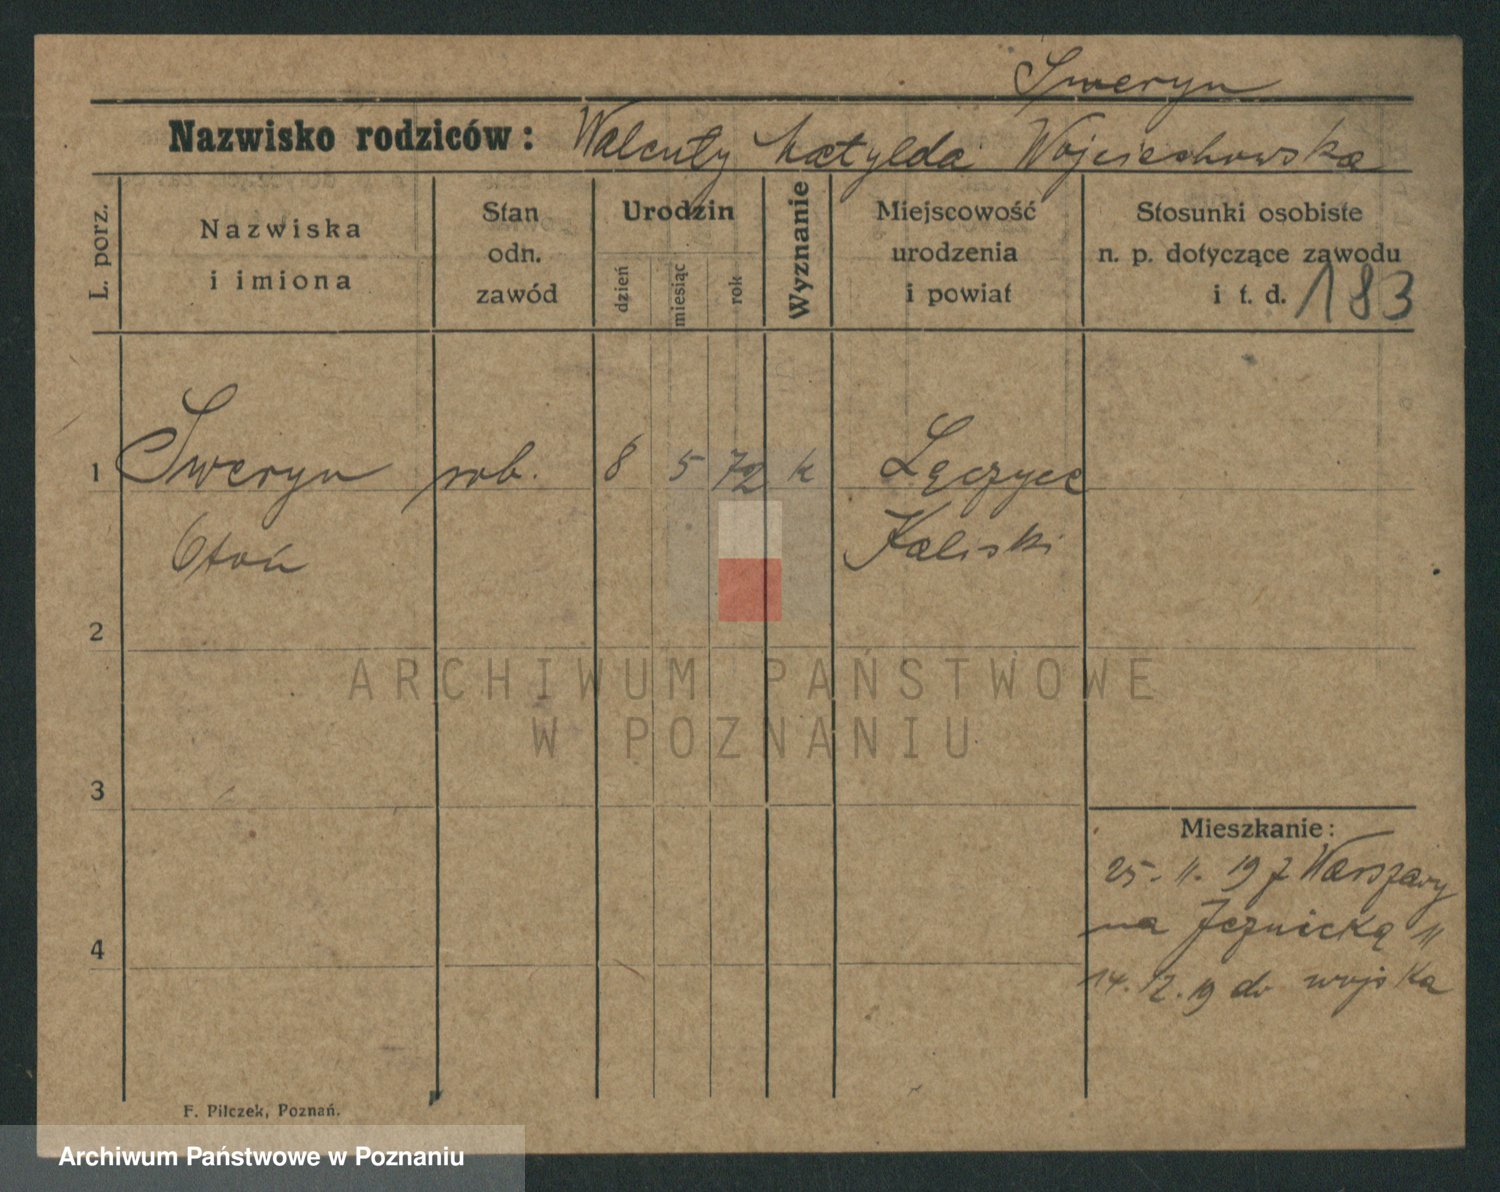 Sweryn
Nazwisko rodziców: Walenty Matylda Wojciechowska
L. porz.
Nazwiska
i imiona
Stan
odn.
zawód
Urodzin
dzień
miesiąc
rok
Wyznanie
Miejscowość
urodzenia
i powiat
Stosunki osobiste
n. p. dotyczące zawodu
i t. d. 183
1 Sweryn rob. 8 5 72 k Łęczyce
Otoń Kaliski
2
ARCHIWUM PAŃSTWOWE
W POZNANIU
3
Mieszkanie:
25. 11. 19 z Warszawy
na Jeznicką 11
4
14. 12. 19 do wojska
F. Pilczek, Poznań.
Archiwum Państwowe w Poznaniu